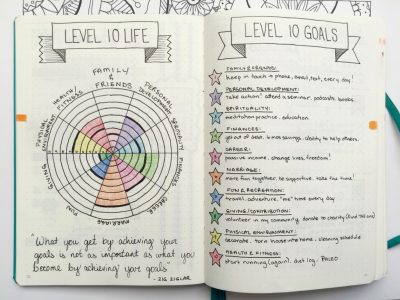 LEVEL 10 LIFE
FAMILY
&
FRIENDS
PERSONAL
DEVELOPMENT
SPIRITUALITY
FINANCES
CAREER
MARRIAGE
FUN
GIVING
PHYSICAL
ENVIRONMENT
HEALTH
FITNESS
"What you get by achieving your
goals is not as important as what you
become by achieving your goals"
- ZIG ZIGLAR
LEVEL 10 GOALS
FAMILY & FRIENDS:
keep in touch → phone, email, text, every day!
PERSONAL DEVELOPMENT:
take action! attend a seminar. podcasts. books.
SPIRITUALITY:
meditation practice. education.
FINANCES:
get out of debt. savings. ability to help others.
CAREER:
passive income, change lives, freedom!
MARRIAGE:
more fun together, be supportive. take the time!
FUN & RECREATION:
travel. adventure. "me" time every day
GIVING/CONTRIBUTION:
volunteer in my community, donate to charity
PHYSICAL ENVIRONMENT:
decorate. turn house into home. cleaning schedule
HEALTH & FITNESS:
start running (again). diet log. PALEO